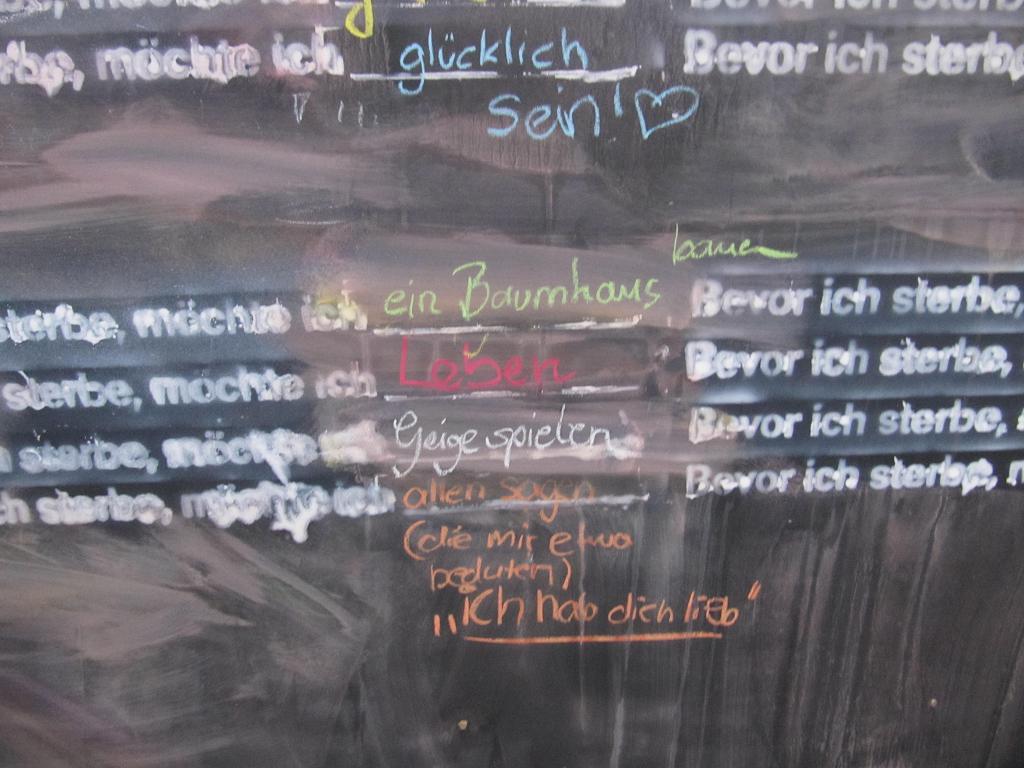 möchte ich Bevor ich sterbe
rbe, möchte ich glücklich Bevor ich sterbe
sein! ♡
bauen
sterbe, möchte ich ein Baumhaus Bevor ich sterbe,
sterbe, möchte ich Leben Bevor ich sterbe,
sterbe, möchte Geige spielen Bevor ich sterbe,
ch sterbe, möchte ich allen sagen Bevor ich sterbe, m
(die mir etwa
beduten)
„Ich hab dich lieb“